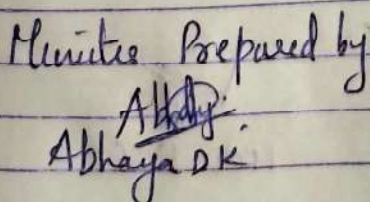 Minutes Prepared by
Abhaya DK.